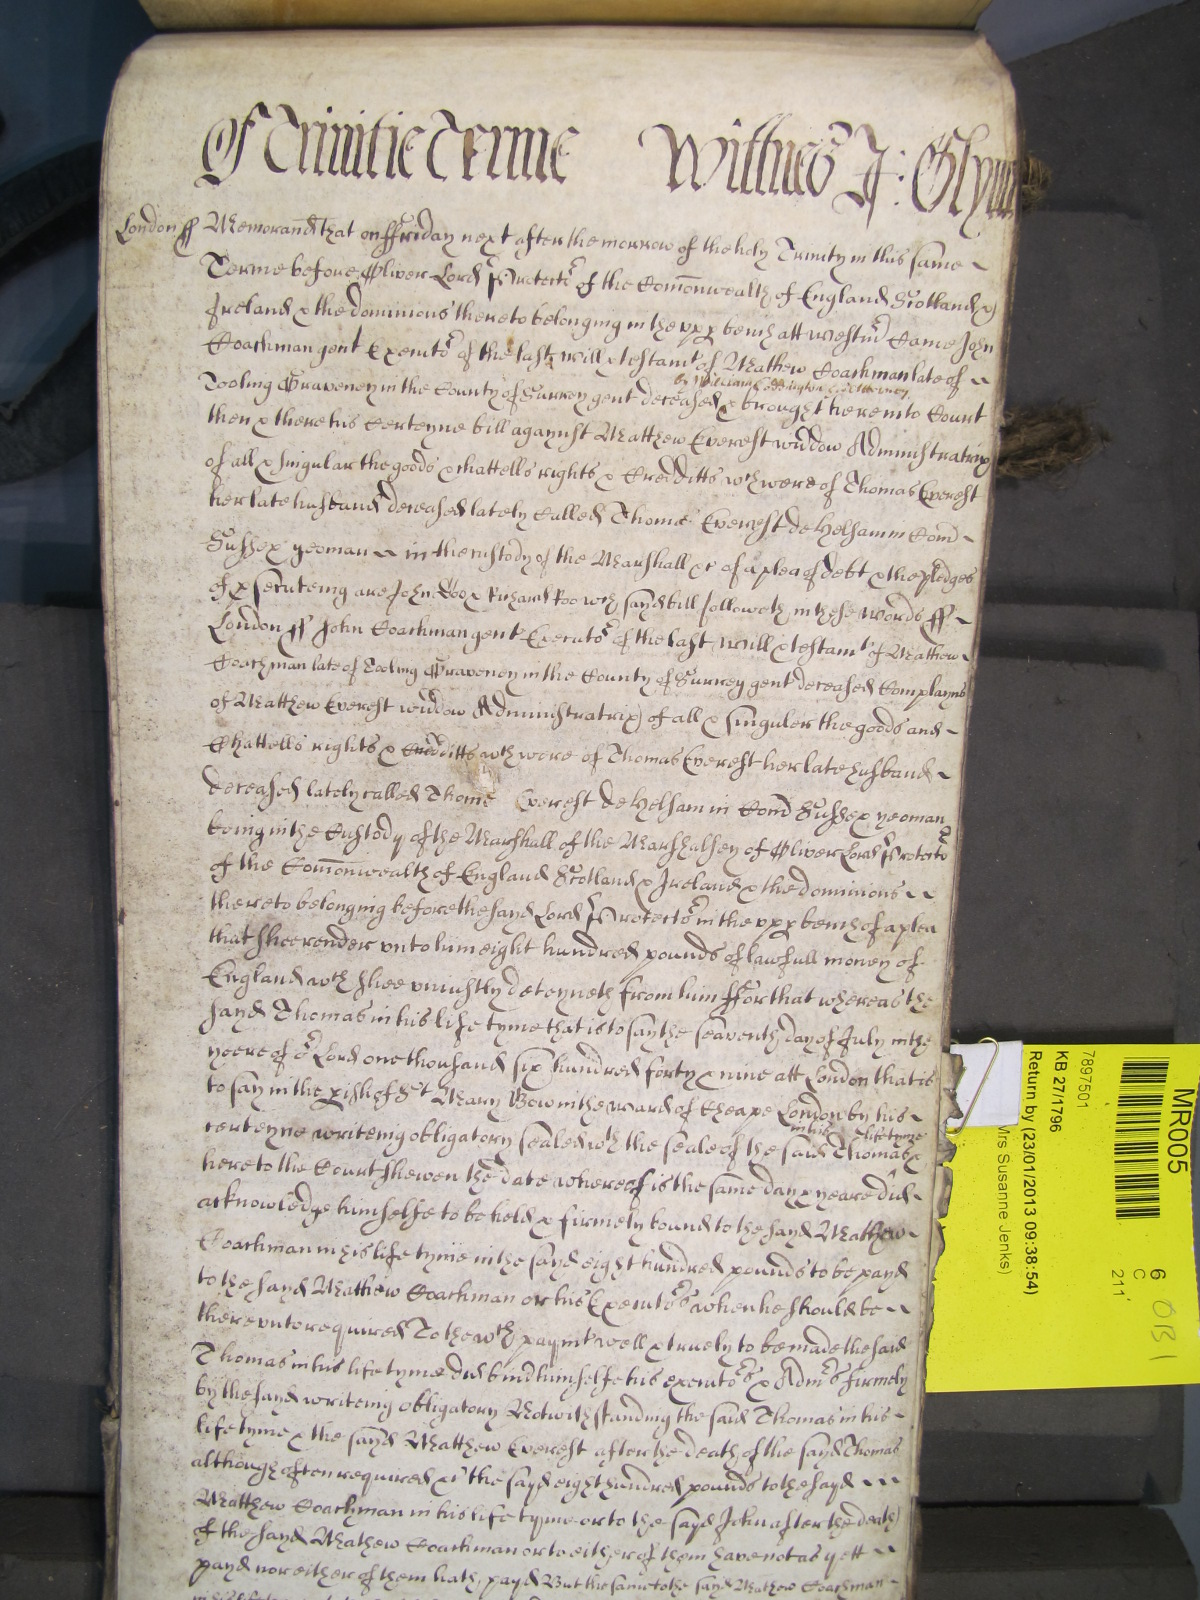 Of Trinitie Terme Wittnes J: Glynn
London ss Memorand that on ffriday next after the morrow of the holy Trinity in this same
Terme before Oliver Lord Protector of the Comonwealth of England Scotland &
Ireland & the dominions thereto belonging in the vpp bench att Westmr Came John
Coachman gent Executor of the last will & testamt of Mathew Coachman late of
by William Coddington his Attorney
Tooling Graveney in the County of Surrey gent deceased & brought here into Court
then & there his certeyne bill against Matthew Everest widdow Administratrix
of all & singular the goods & chattells rights & Credditts wch were of Thomas Everest
her late husband deceased lately called Thome Everest de Helsam in Com
Sussex yeoman in the custody of the Marshall &c of a plea of debt & the pledges
of prsecuteing are John Doo & Richard Roo wch sayd bill followeth in these words ss
London ss John Coachman gent Executor of the last will & testamt of Mathew
Coachman late of Tooling Graveney in the County of Surrey gent deceased Complayns
of Matthew Everest widdow Administratrix of all & singuler the goods and
Chattells rights & Credditts wch were of Thomas Everest her late husband
deceased lately called Thome Everest de Helsam in Com Sussex yeoman
being in the Custody of the Marshall of the Marshalsey of Oliver Lord Protector
of the Comonwealth of England Scotland & Ireland & the dominions
thereto belonging before the sayd Lord Protector in the vpp bench of a plea
that shee render vnto him eight hundred pounds of lawfull money of
England wch shee vniustly deteyneth from him ffor that whereas the
sayd Thomas in his life tyme that is to say the seaventh day of July in the
yeere of or Lord one thousand six hundred forty & nine att London that is
to say in the pish of St Mary Bow in the ward of Cheape London by his
in his life tyme
certeyne writeing obligatory sealed wth the seale of the said Thomas &
here to the Court shewen the date whereof is the same day & yeare did
acknowledge himselfe to be held & firmely bound to the sayd Mathew
Coachman in his life tyme in the sayd eight hundred pounds to be payd
to the sayd Mathew Coachman or his Executors when he should be
therevnto required To the wch paymt well & truely to be made the said
Thomas in his life tyme did bind himselfe his executors & Admrs firmely
by the sayd writeing obligatory Notwithstanding the said Thomas in his
life tyme & the sayd Matthew Everest after the death of the sayd Thomas
although often required &c the sayd eight hundred pounds to the sayd
Matthew Coachman in his life tyme or to the sayd John after the death
of the sayd Mathew Coachman or to either of them have not as yett
payd nor either of them hath payd But the same to the sayd Mathew Coachman
MR005
7897501
KB 27/1796
Return by (23/01/2013 09:38:54)
Mrs Susanne Jenks)
6
C
211'